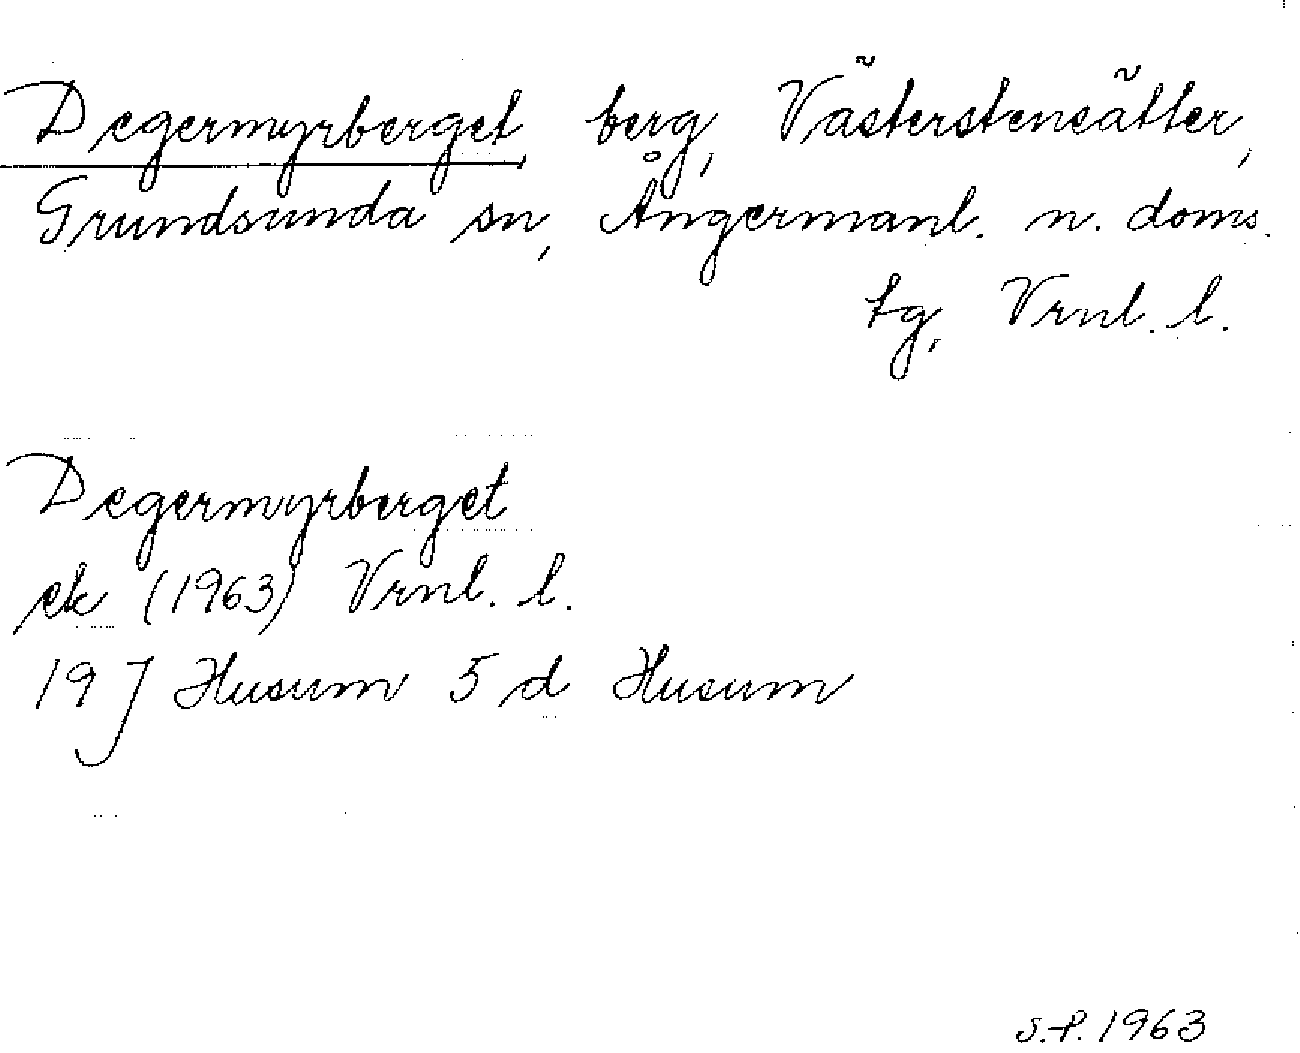 Degermyrberget, berg, Västerstensätter,
Grundsunda sn, Ångermanl. n. doms.
tg, Vrnl. l.
Degermyrberget
ek (1963) Vrnl. l.
19 J Husum 5 d Husum
S.P. 1963